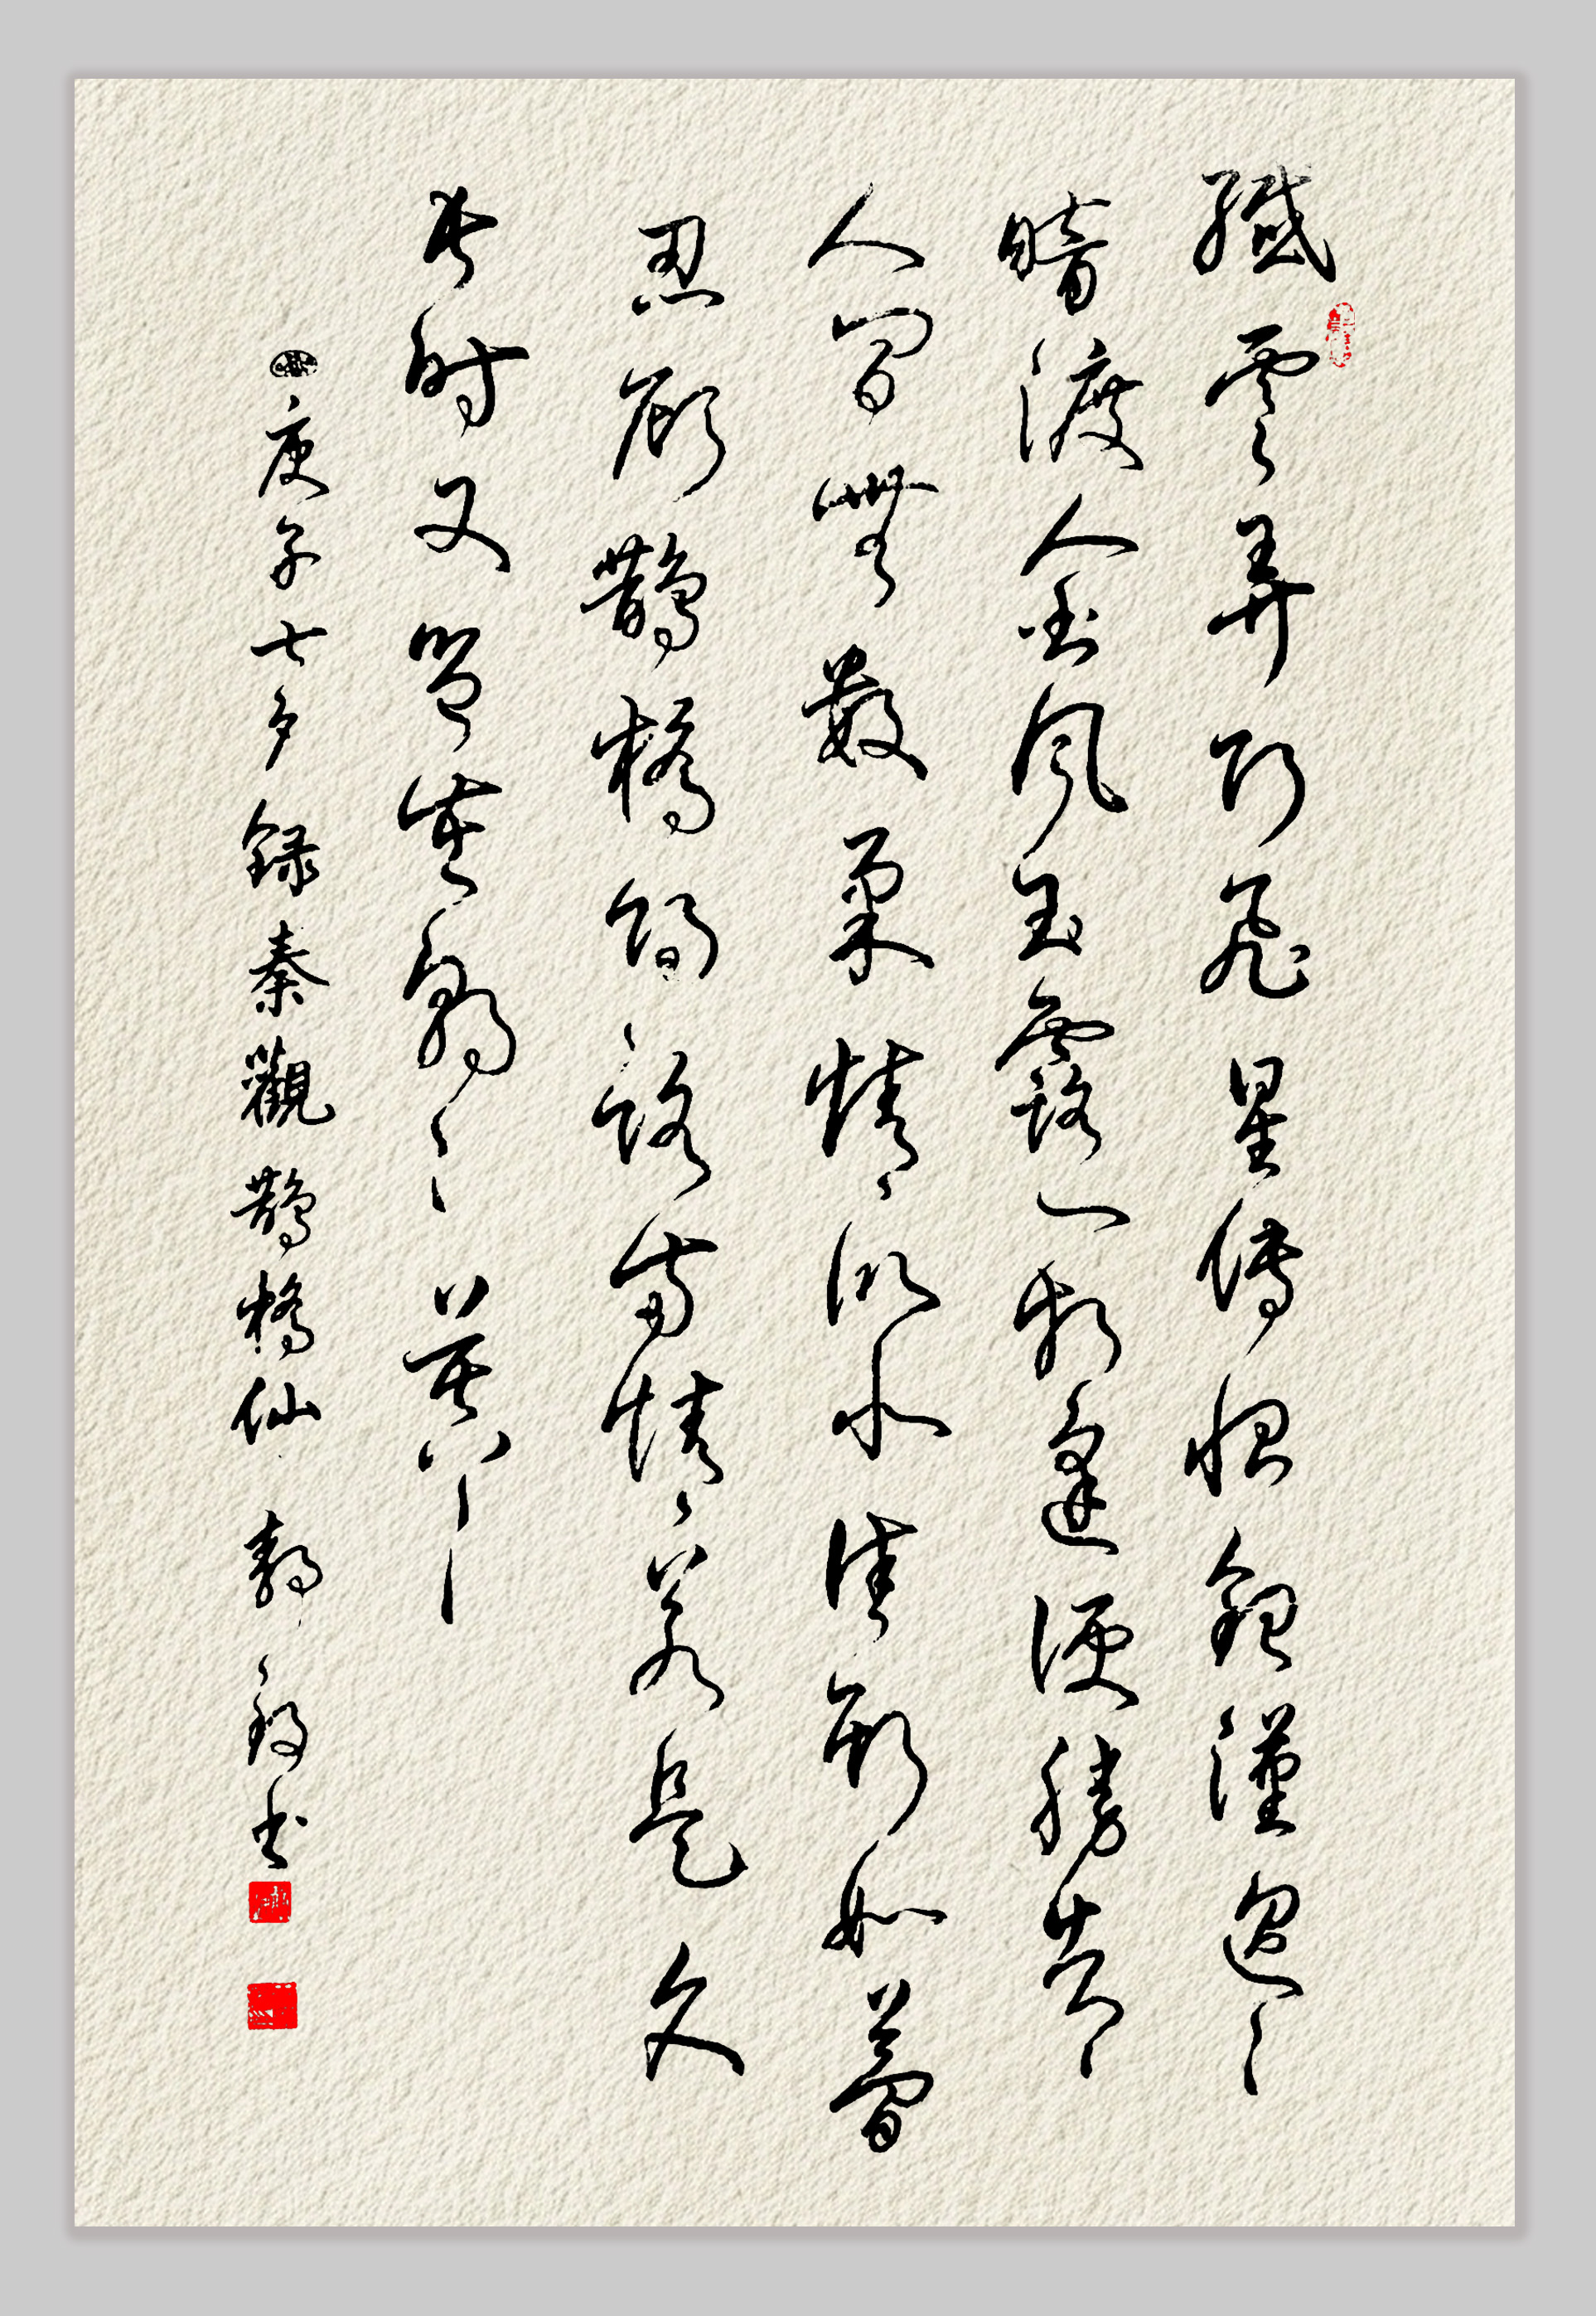 纖雲弄巧飛星傳恨銀漢迢迢
暗渡金風玉露一相逢便勝却
人間無數柔情似水佳期如夢
忍顧鵲橋歸路兩情若是久
長時又豈在朝朝暮暮
庚子七夕録秦觀鵲橋仙 书